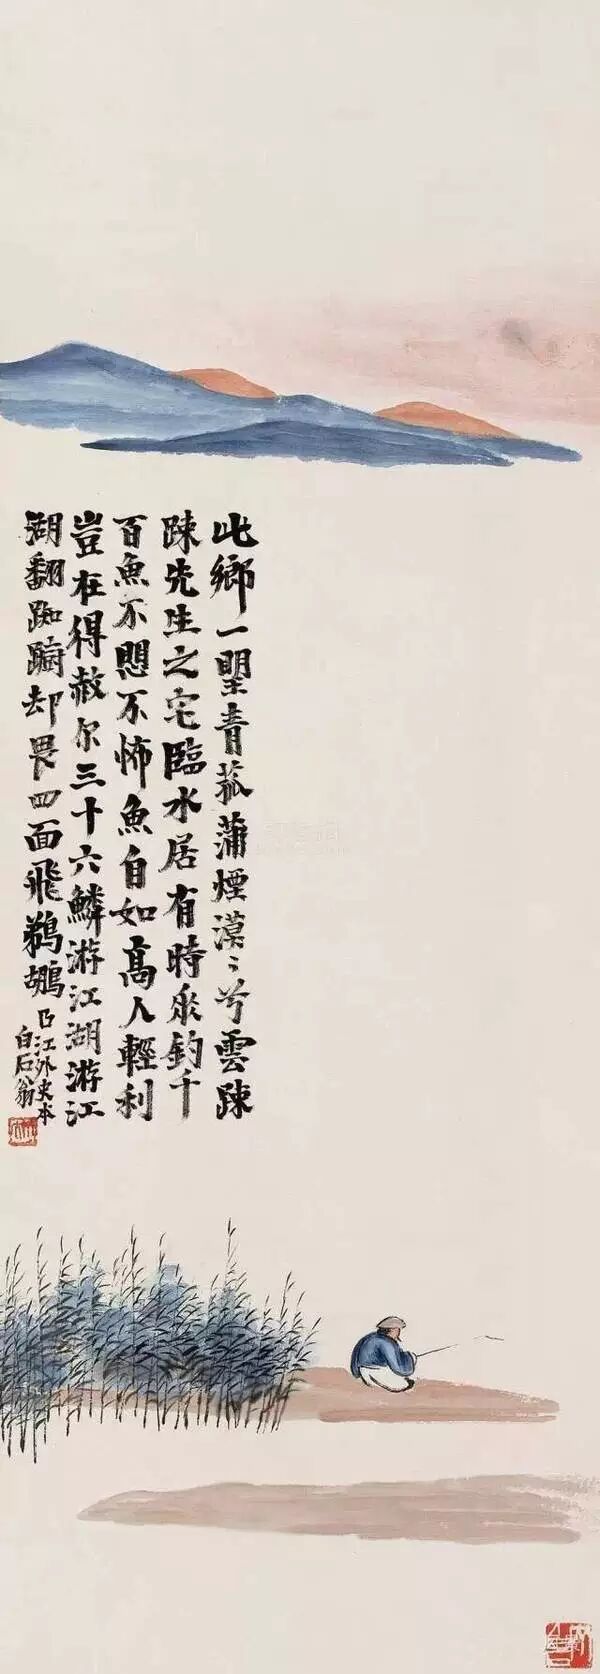 此鄉一望青菰蒲煙漠〻兮雲踈
踈先生之宅臨水居有時乘釣千
百魚不愳不怖魚自如高人輕利
豈在得赦尔三十六鱗游江湖游江
湖翻踟躕却畏四面飛鵜鶘
白石翁